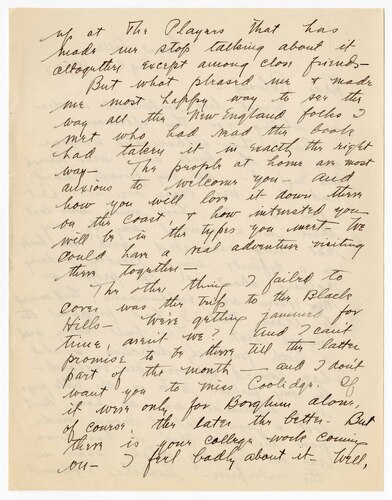 up at The Players that has
made me stop talking about it
altogether except among close friends—
But what pleased me & made
me most happy was to see the
way all the New England folks I
met who had read the book
had taken it in exactly the right
way— The people at home are most
anxious to welcome you— and
how you will love it down there
on the coast, & how interested you
will be in the types you meet— We
could have a real adventure visiting
there together—
The other thing I failed to
cover was the trip to the Black
Hills— We're getting jammed for
time, aren't we? and I can't
promise to be there till the latter
part of the month— and I don't
want you to miss Coolidge. If
it were only for Borghum alone,
of course, the later the better. But
there is your college work coming
on— I feel badly about it— Well,